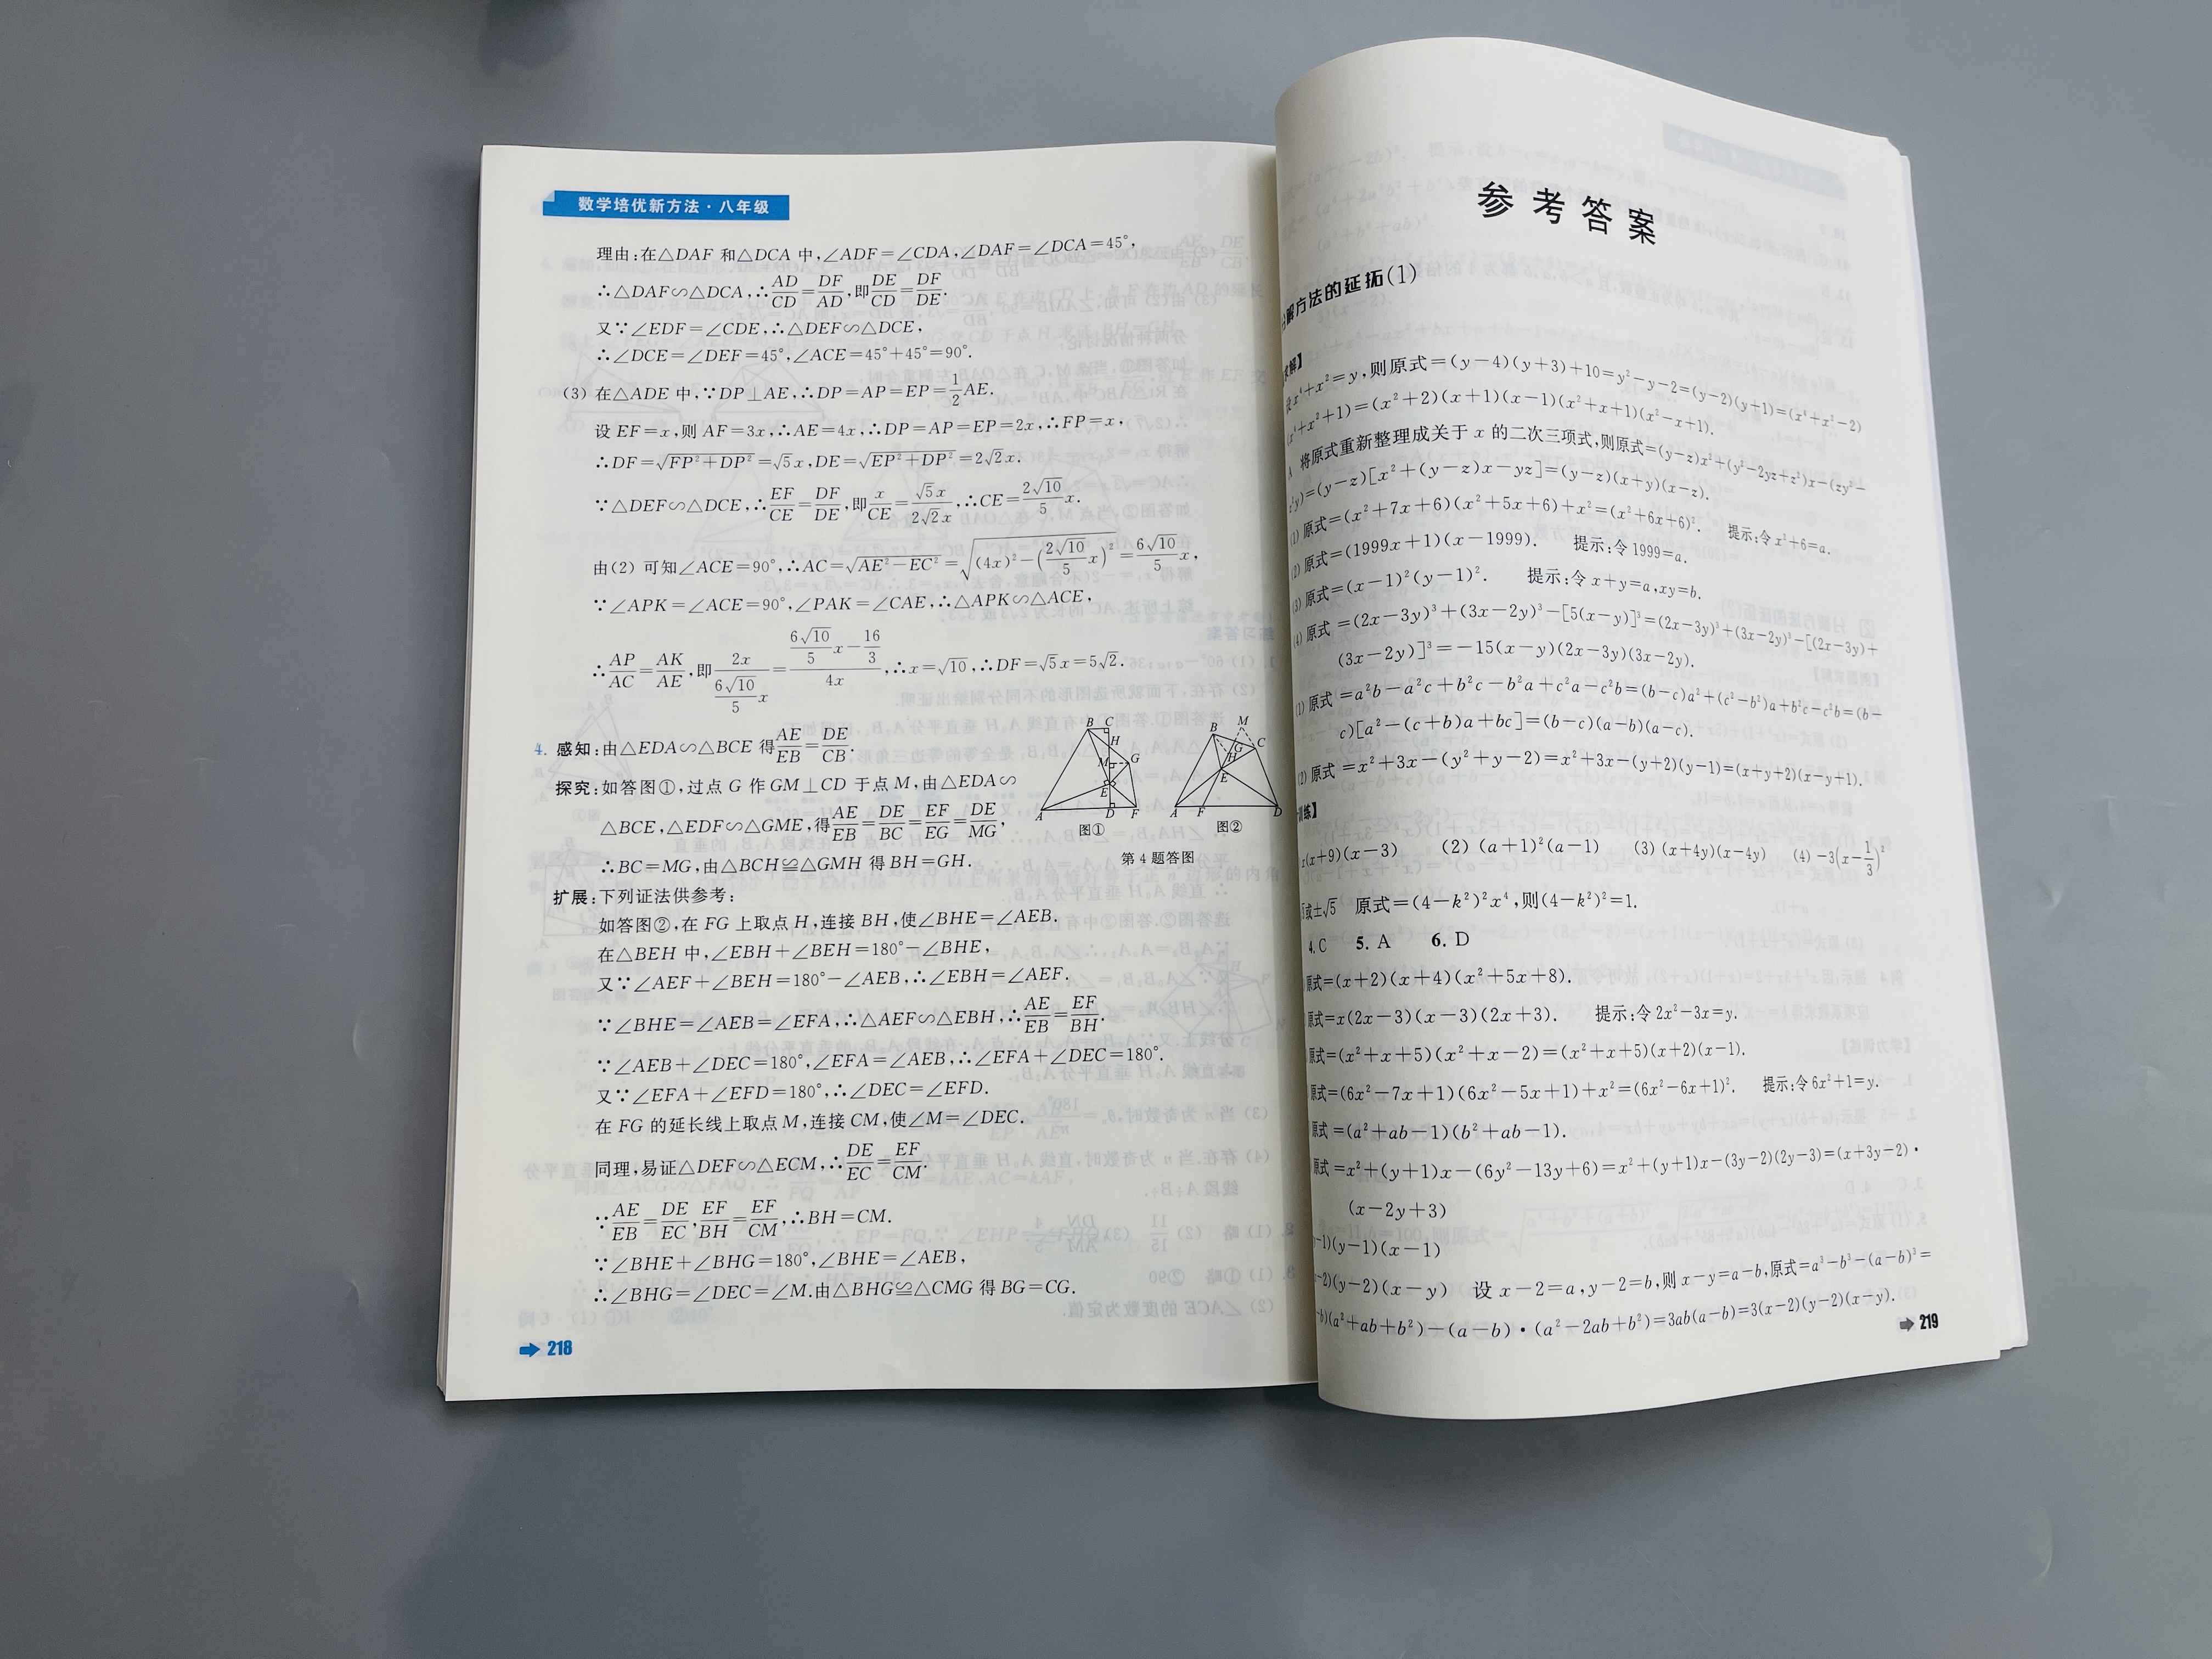 数学培优新方法·八年级
理由:在△DAF 和△DCA 中,∠ADF=∠CDA,∠DAF=∠DCA=45°,
∴△DAF∽△DCA,∴AD/CD=DF/AD,即DE/CD=DF/DE.
又∵∠EDF=∠CDE,∴△DEF∽△DCE,
∴∠DCE=∠DEF=45°,∠ACE=45°+45°=90°.
(3) 在△ADE 中,∵DP⊥AE,∴DP=AP=EP=1/2AE.
设 EF=x,则 AF=3x,∴AE=4x,∴DP=AP=EP=2x,∴FP=x,
∴DF=√(FP²+DP²)=√5x,DE=√(EP²+DP²)=2√2x.
∵△DEF∽△DCE,∴EF/CE=DF/DE,即x/CE=√5x/2√2x,∴CE=2√10/5x.
由(2) 可知∠ACE=90°,∴AC=√(AE²−EC²)=√((4x)²−(2√10/5x)²)=6√10/5x,
∵∠APK=∠ACE=90°,∠PAK=∠CAE,∴△APK∽△ACE,
∴AP/AC=AK/AE,即2x/(6√10/5x)=(6√10/5x−16/3)/4x,∴x=√10,∴DF=√5x=5√2.
4. 感知:由△EDA∽△BCE 得AE/EB=DE/CB.
探究:如答图①,过点 G 作GM⊥CD 于点 M,由△EDA∽
△BCE,△EDF∽△GME,得AE/EB=DE/BC=EF/EG=DE/MG,
∴BC=MG,由△BCH≌△GMH 得BH=GH.
B C H M G E A D F
图①
M B G C H E A F D
图②
第 4 题答图
扩展:下列证法供参考:
如答图②,在 FG 上取点 H,连接 BH,使∠BHE=∠AEB.
在△BEH 中,∠EBH+∠BEH=180°−∠BHE,
又∵∠AEF+∠BEH=180°−∠AEB,∴∠EBH=∠AEF.
∵∠BHE=∠AEB=∠EFA,∴△AEF∽△EBH,∴AE/EB=EF/BH.
∵∠AEB+∠DEC=180°,∠EFA=∠AEB,∴∠EFA+∠DEC=180°.
又∵∠EFA+∠EFD=180°,∴∠DEC=∠EFD.
在 FG 的延长线上取点 M,连接 CM,使∠M=∠DEC.
同理,易证△DEF∽△ECM,∴DE/EC=EF/CM.
∵AE/EB=DE/EC,EF/BH=EF/CM,∴BH=CM.
∵∠BHE+∠BHG=180°,∠BHE=∠AEB,
∴∠BHG=∠DEC=∠M.由△BHG≌△CMG 得 BG=CG.
218
参考答案
解方法的延拓(1)
解】
设x⁴+x²=y,则原式=(y−4)(y+3)+10=y²−y−2=(y−2)(y+1)=(x⁴+x²−2)
(x⁴+x²+1)=(x²+2)(x+1)(x−1)(x²+x+1)(x²−x+1).
A 将原式重新整理成关于 x 的二次三项式,则原式=(y−z)x²+(y²−2yz+z²)x−(zy²−
z²y)=(y−z)[x²+(y−z)x−yz]=(y−z)(x+y)(x−z).
(1) 原式=(x²+7x+6)(x²+5x+6)+x²=(x²+6x+6)². 提示:令 x²+6=a.
(2) 原式=(1999x+1)(x−1999). 提示:令 1999=a.
(3) 原式=(x−1)²(y−1)². 提示:令 x+y=a,xy=b.
(4) 原式=(2x−3y)³+(3x−2y)³−[5(x−y)]³=(2x−3y)³+(3x−2y)³−[(2x−3y)+
(3x−2y)]³=−15(x−y)(2x−3y)(3x−2y).
(1) 原式=a²b−a²c+b²c−b²a+c²a−c²b=(b−c)a²+(c²−b²)a+b²c−c²b=(b−
c)[a²−(c+b)a+bc]=(b−c)(a−b)(a−c).
(2) 原式=x²+3x−(y²+y−2)=x²+3x−(y+2)(y−1)=(x+y+2)(x−y+1).
训练】
x(x+9)(x−3) (2) (a+1)²(a−1) (3) (x+4y)(x−4y) (4) −3(x−1/3)²
或±√5 原式=(4−k²)²x⁴,则(4−k²)²=1.
4. C 5. A 6. D
原式=(x+2)(x+4)(x²+5x+8).
原式=x(2x−3)(x−3)(2x+3). 提示:令 2x²−3x=y.
原式=(x²+x+5)(x²+x−2)=(x²+x+5)(x+2)(x−1).
原式=(6x²−7x+1)(6x²−5x+1)+x²=(6x²−6x+1)². 提示:令 6x²+1=y.
原式=(a²+ab−1)(b²+ab−1).
原式=x²+(y+1)x−(6y²−13y+6)=x²+(y+1)x−(3y−2)(2y−3)=(x+3y−2)·
(x−2y+3)
−1)(y−1)(x−1)
−2)(y−2)(x−y) 设 x−2=a,y−2=b,则 x−y=a−b,原式=a³−b³−(a−b)³=
b)(a²+ab+b²)−(a−b)·(a²−2ab+b²)=3ab(a−b)=3(x−2)(y−2)(x−y).
219